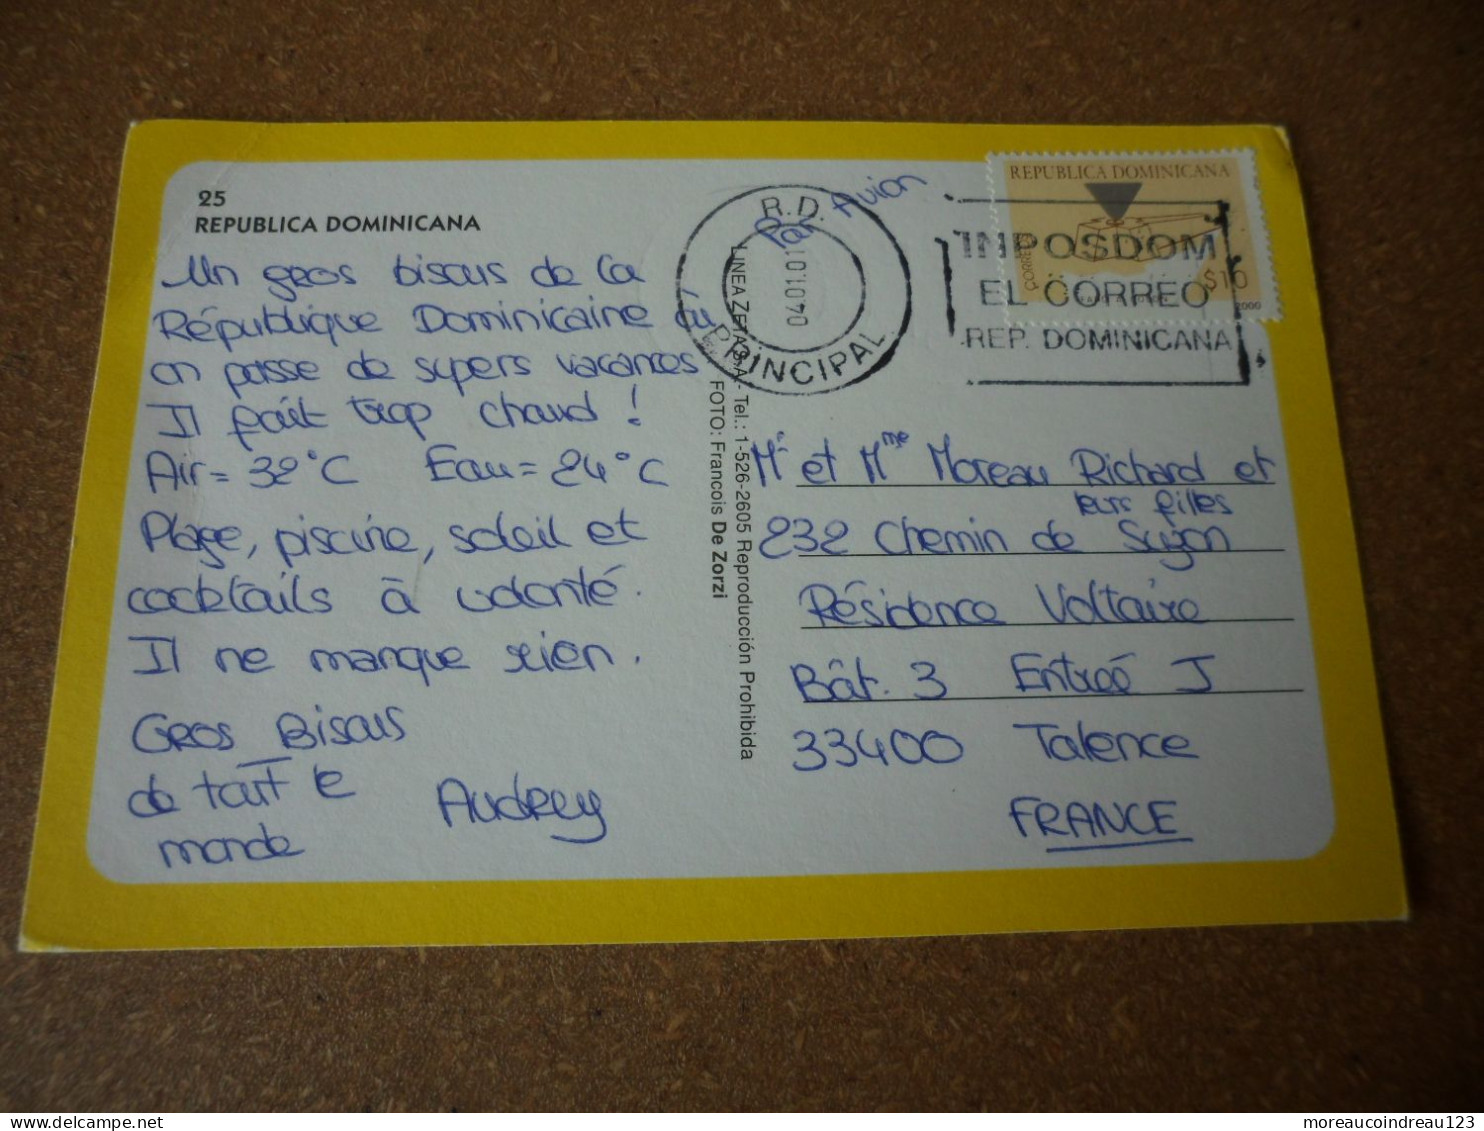 25
REPUBLICA DOMINICANA
Un gros bisous de la
République Dominicaine
on passe de supers vacances
Il fait trop chaud !
Air = 32°C Eau = 24°C
Plage, piscine, soleil et
cocktails à volonté.
Il ne manque rien.
Gros Bisous
de tout le
monde
Audrey
LINEA ZETA S.A. - Tel.: 1-526-2605 Reproducción Prohibida
FOTO: Francois De Zorzi
Par Avion
R.D.
PRINCIPAL
REPUBLICA DOMINICANA
CORREOS
$10
2000
INPOSDOM
EL CORREO
REP. DOMINICANA
Mr et Mme Moreau Richard et
leurs filles
232 Chemin de Suzon
Résidence Voltaire
Bât. 3 Entrée J
33400 Talence
FRANCE
moreaucoindreau123